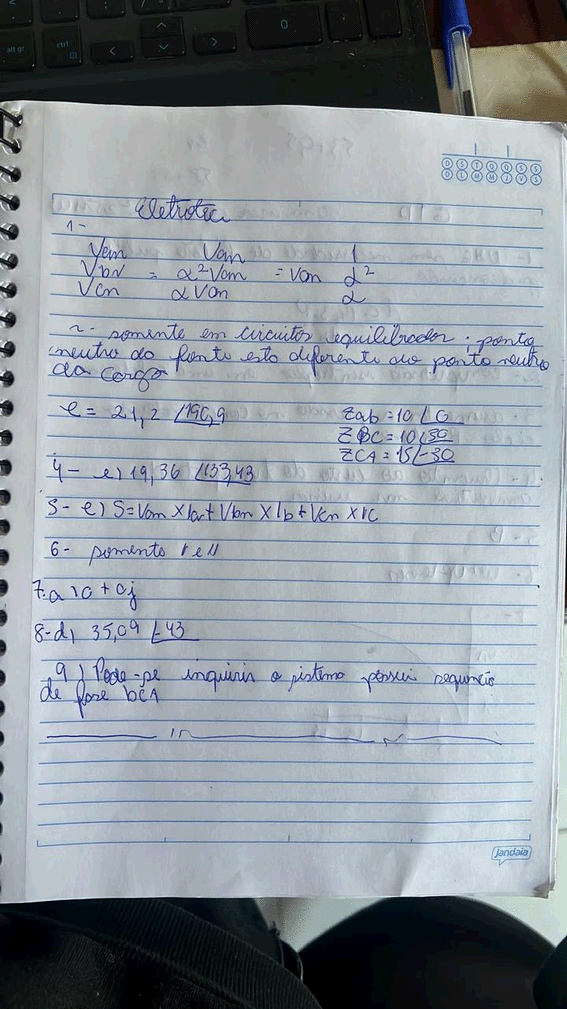 Eletrotec
1-
Van Van 1
Vbn = α²Van = Van α²
Vcn αVan α
2- somente em circuitos equilibrados; ponto
neutro da fonte esta diferente do ponto neutro
da carga
e = 21,2 ∠190,9
Zab = 10 ∠0
ZBC = 10 ∠30
ZCA = 15 ∠-30
4- e) 19,36 ∠133,43
5- e) S = Van x Ia + Vbn x Ib + Vcn x Ic
6- somente I e II
7- a) 0 + 0j
8- d) 35,09 ∠-43
9) Pode-se inquirir o sistema possui sequencia
de fase bCA
jandaia